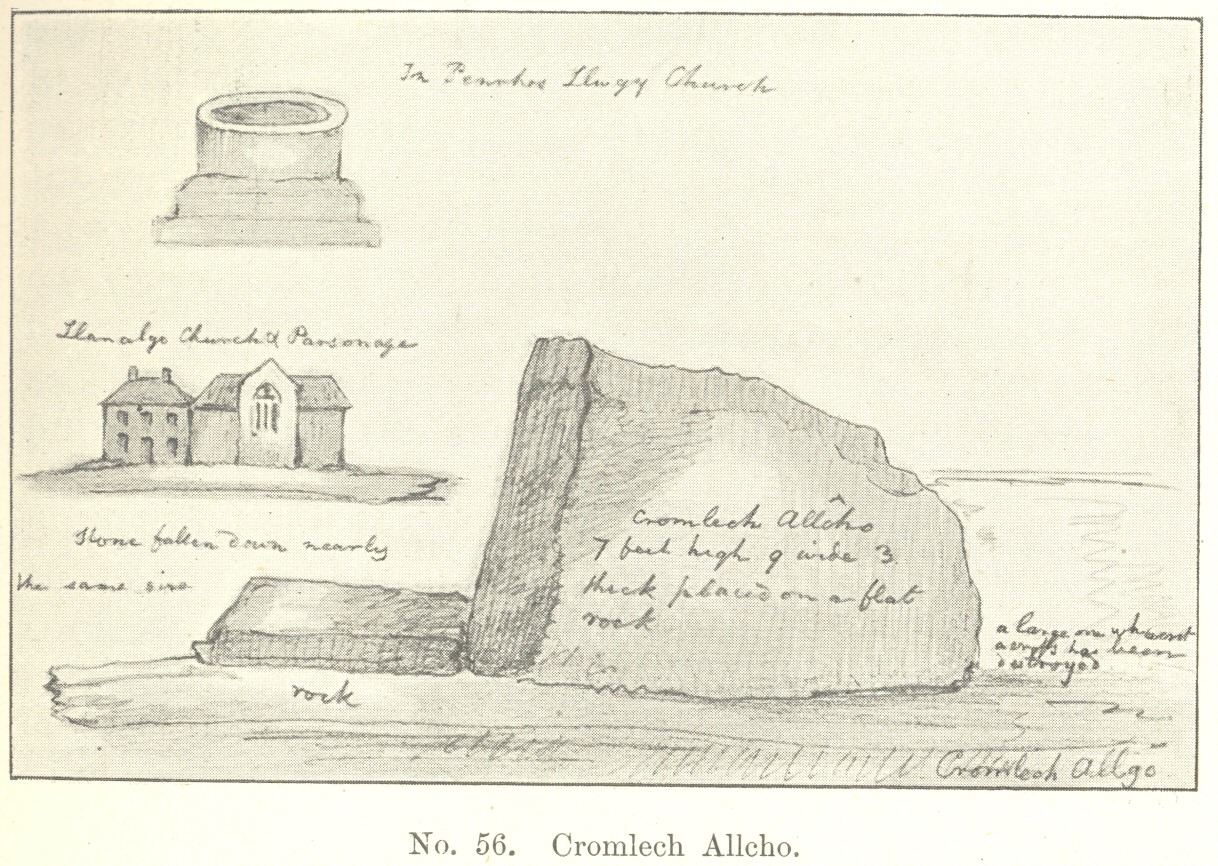 In Penrhos Llwgy Church
Llanalgo Church & Parsonage
Stone fallen down nearly
the same size
cromlech Allcho
7 feet high 9 wide 3
thick placed on a flat
rock
a large one wh went
across has been
destroyed
rock
Cromlech Allgo
No. 56. Cromlech Allcho.